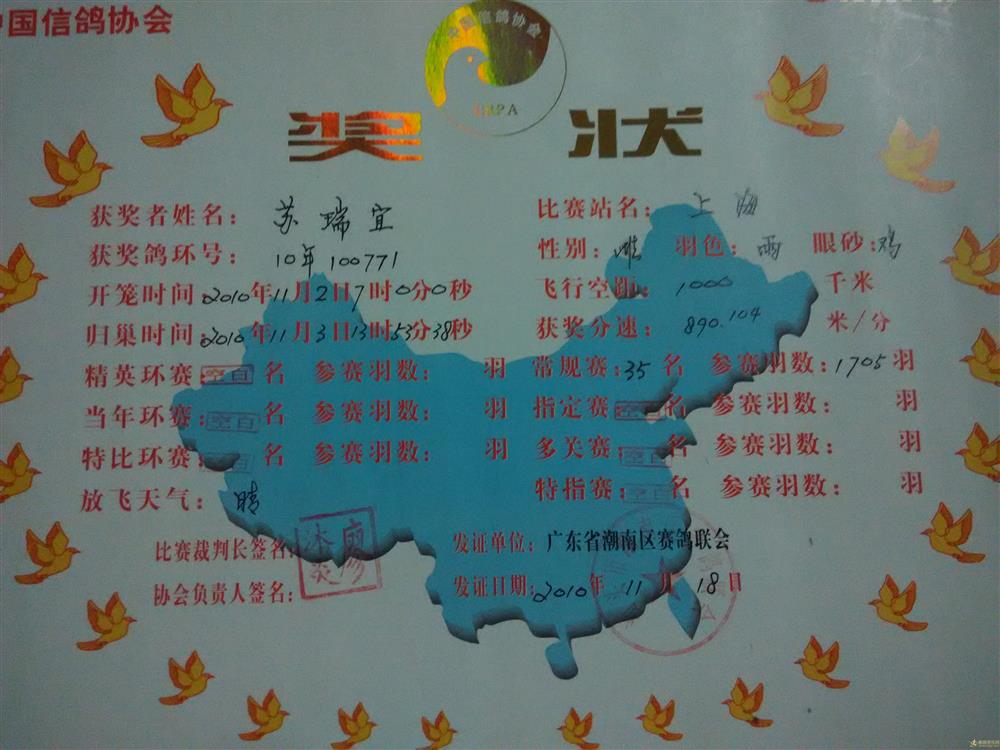 中国信鸽协会
中国信鸽协会
CRPA
奖状
获奖者姓名：苏瑞宜 比赛站名：上海
获奖鸽环号：10年100771 性别：雌 羽色：雨 眼砂：鸡
开笼时间2010年11月2日7时0分0秒 飞行空距：1000千米
归巢时间2010年11月3日13时53分38秒 获奖分速：890.104米/分
精英环赛：空白名 参赛羽数：羽 常规赛：35名 参赛羽数：1705羽
当年环赛：空白名 参赛羽数：羽 指定赛：空白名 参赛羽数：羽
特比环赛：空白名 参赛羽数：羽 多关赛：空白名 参赛羽数：羽
放飞天气：晴 特指赛：空白名 参赛羽数：羽
比赛裁判长签名： 发证单位：广东省潮南区赛鸽联会
协会负责人签名： 发证日期：2010年11月18日